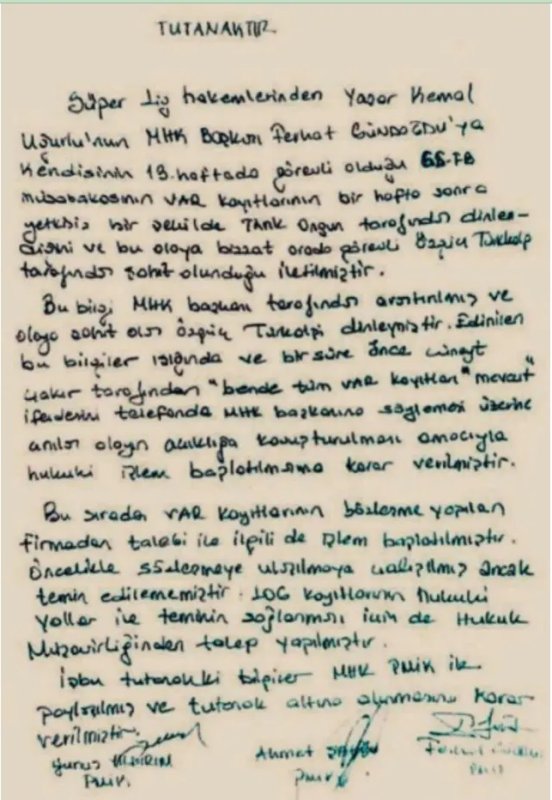 TUTANAKTIR
Süper Lig hakemlerinden Yaşar Kemal
Uğurlu'nun MHK Başkanı Ferhat GÜNDOĞDU'ya
Kendisinin 19. haftada görevli olduğu GS-FB
müsabakasının VAR kayıtlarının bir hafta sonra
yetkisiz bir şekilde Tarık Ongun tarafından dinlen-
diğini ve bu olaya bizzat orada görevli Özgüç Türkalp
tarafından şahit olunduğu iletilmiştir.
Bu bilgi MHK başkanı tarafından araştırılmış ve
olaya şahit olan Özgüç Türkalpi dinlemiştir. Edinilen
bu bilgiler ışığında ve bir süre önce Cüneyt
Çakır tarafından "bende tüm VAR kayıtları mevcut"
ifadesini telefonda MHK başkanına söylemesi üzerine
anılan olayın açıklığa kavuşturulması amacıyla
hukuki işlem başlatılmasına karar verilmiştir.
Bu sırada VAR kayıtlarının sözleşme yapılan
firmadan talebi ile ilgili de işlem başlatılmıştır.
Öncelikle sözleşmeye ulaşılmaya çalışılmış ancak
temin edilememiştir. LOG kayıtlarının hukuki
yollar ile teminin sağlanması için de Hukuk
Müşavirliğinden talep yapılmıştır.
İşbu tutanaktaki bilgiler MHK PMİK ile
paylaşılmış ve tutanak altına alınmasına karar
verilmiştir.
Yunus YILDIRIM Ahmet Ferhat
PMİK PMİK